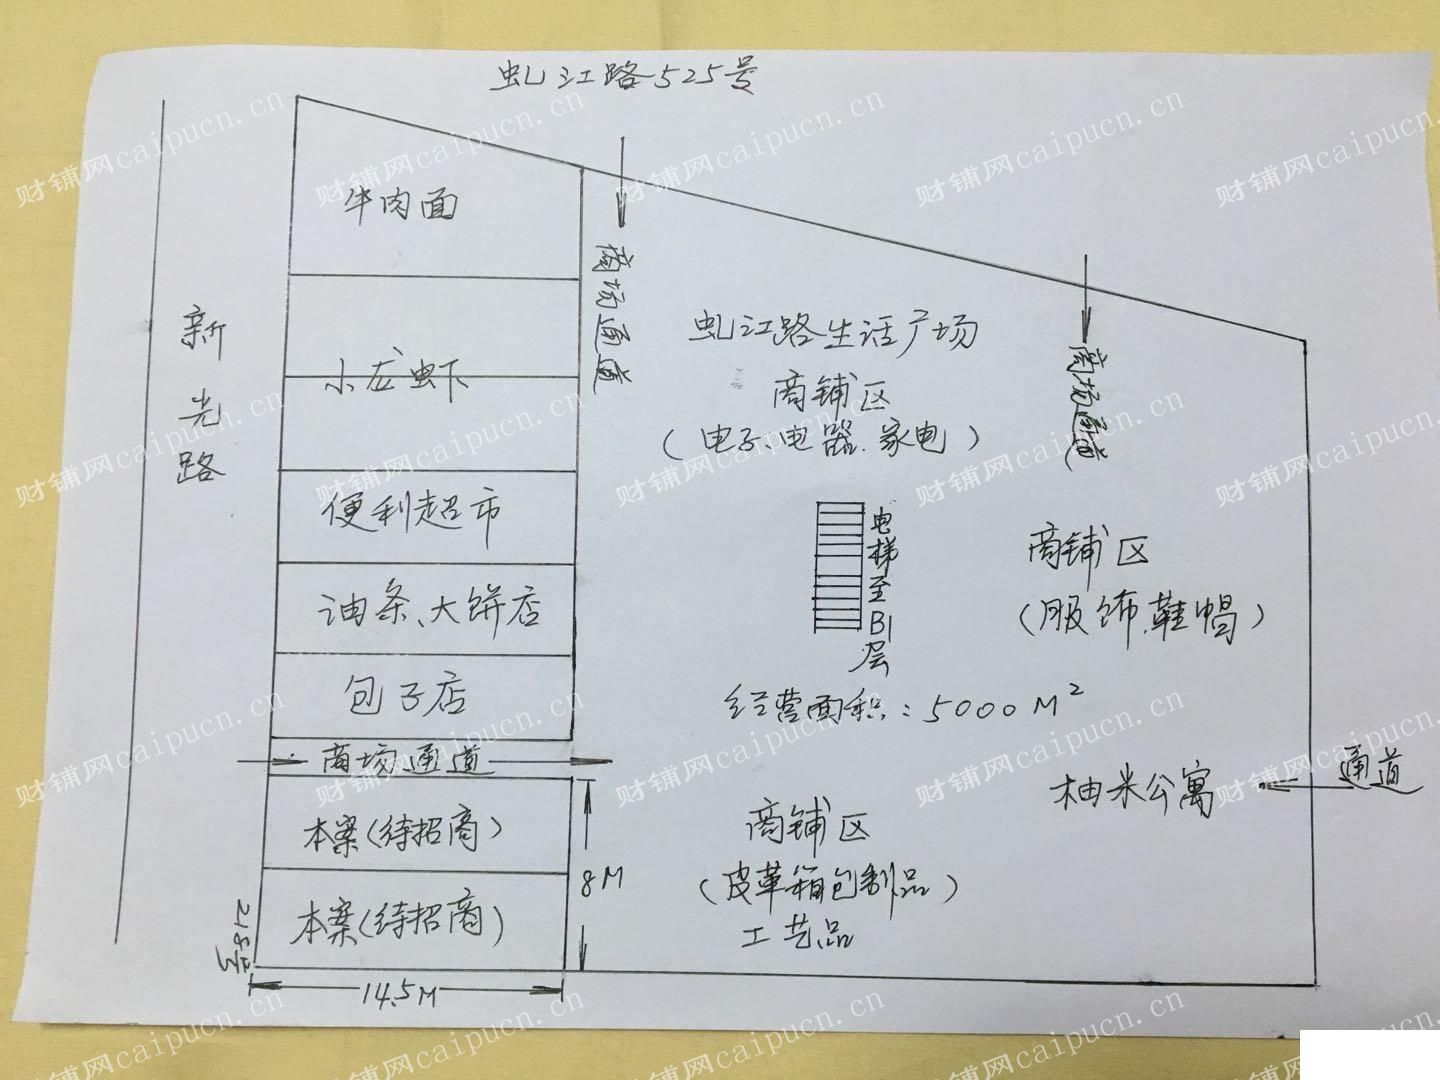 虬江路525号
新光路
牛肉面
小龙虾
便利超市
油条、大饼店
包子店
商场通道
本案(待招商)
本案(待招商)
218号
14.5M
8M
商场通道
虬江路生活广场
商铺区
(电子、电器、家电)
电梯至B1层
经营面积:5000M²
商铺区
(皮革箱包制品)
工艺品
商场通道
商铺区
(服饰、鞋帽)
柚米公寓
通道
财铺网caipucn.cn